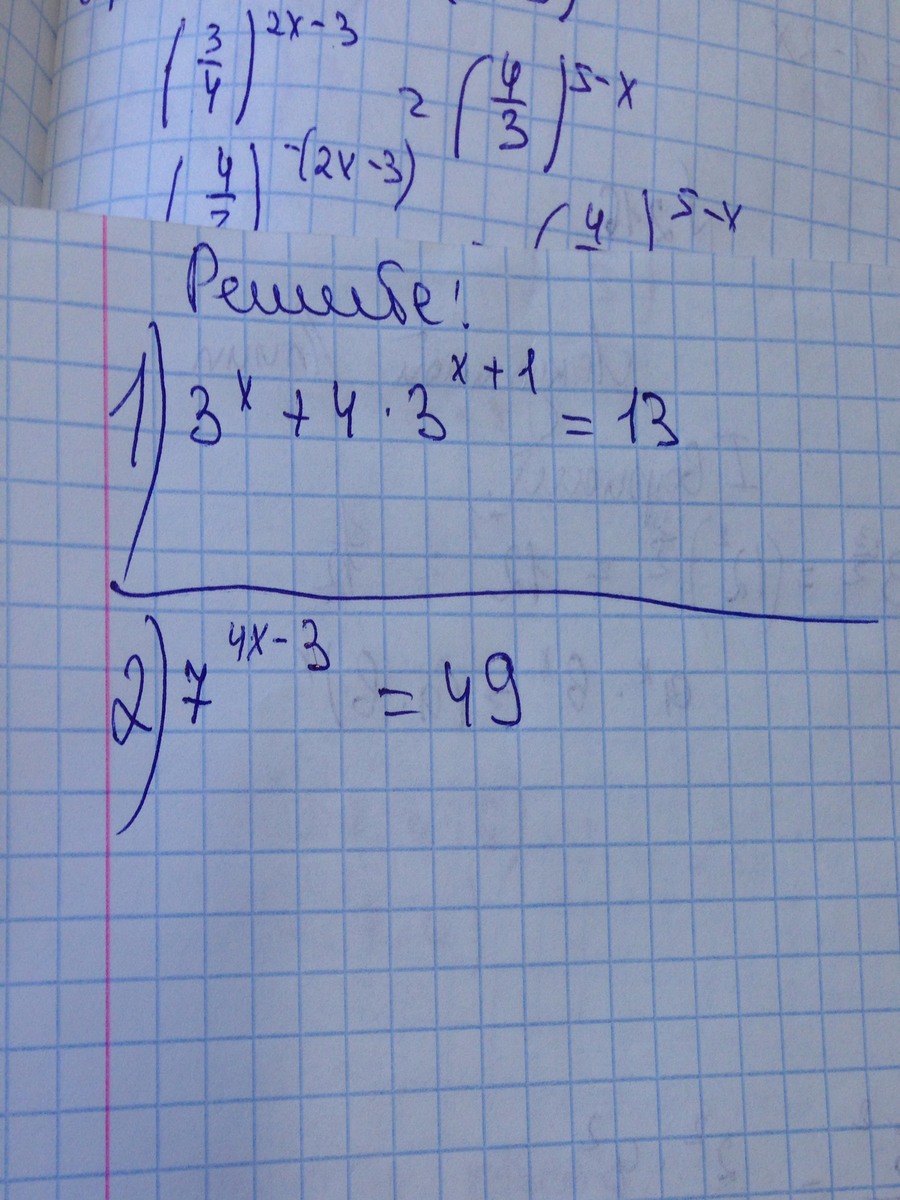 (3/4)^(2x-3) = (4/3)^(5-x)
(4/3)^(-(2x-3)) (4)^(5-x)
Решите!
1) 3^x + 4 · 3^(x+1) = 13
2) 7^(4x-3) = 49